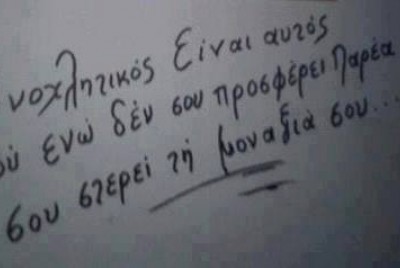 νοχλητικός είναι αυτός
ού ενώ δέν σου προσφέρει παρέα
σου στερεί τή μοναξιά σου...